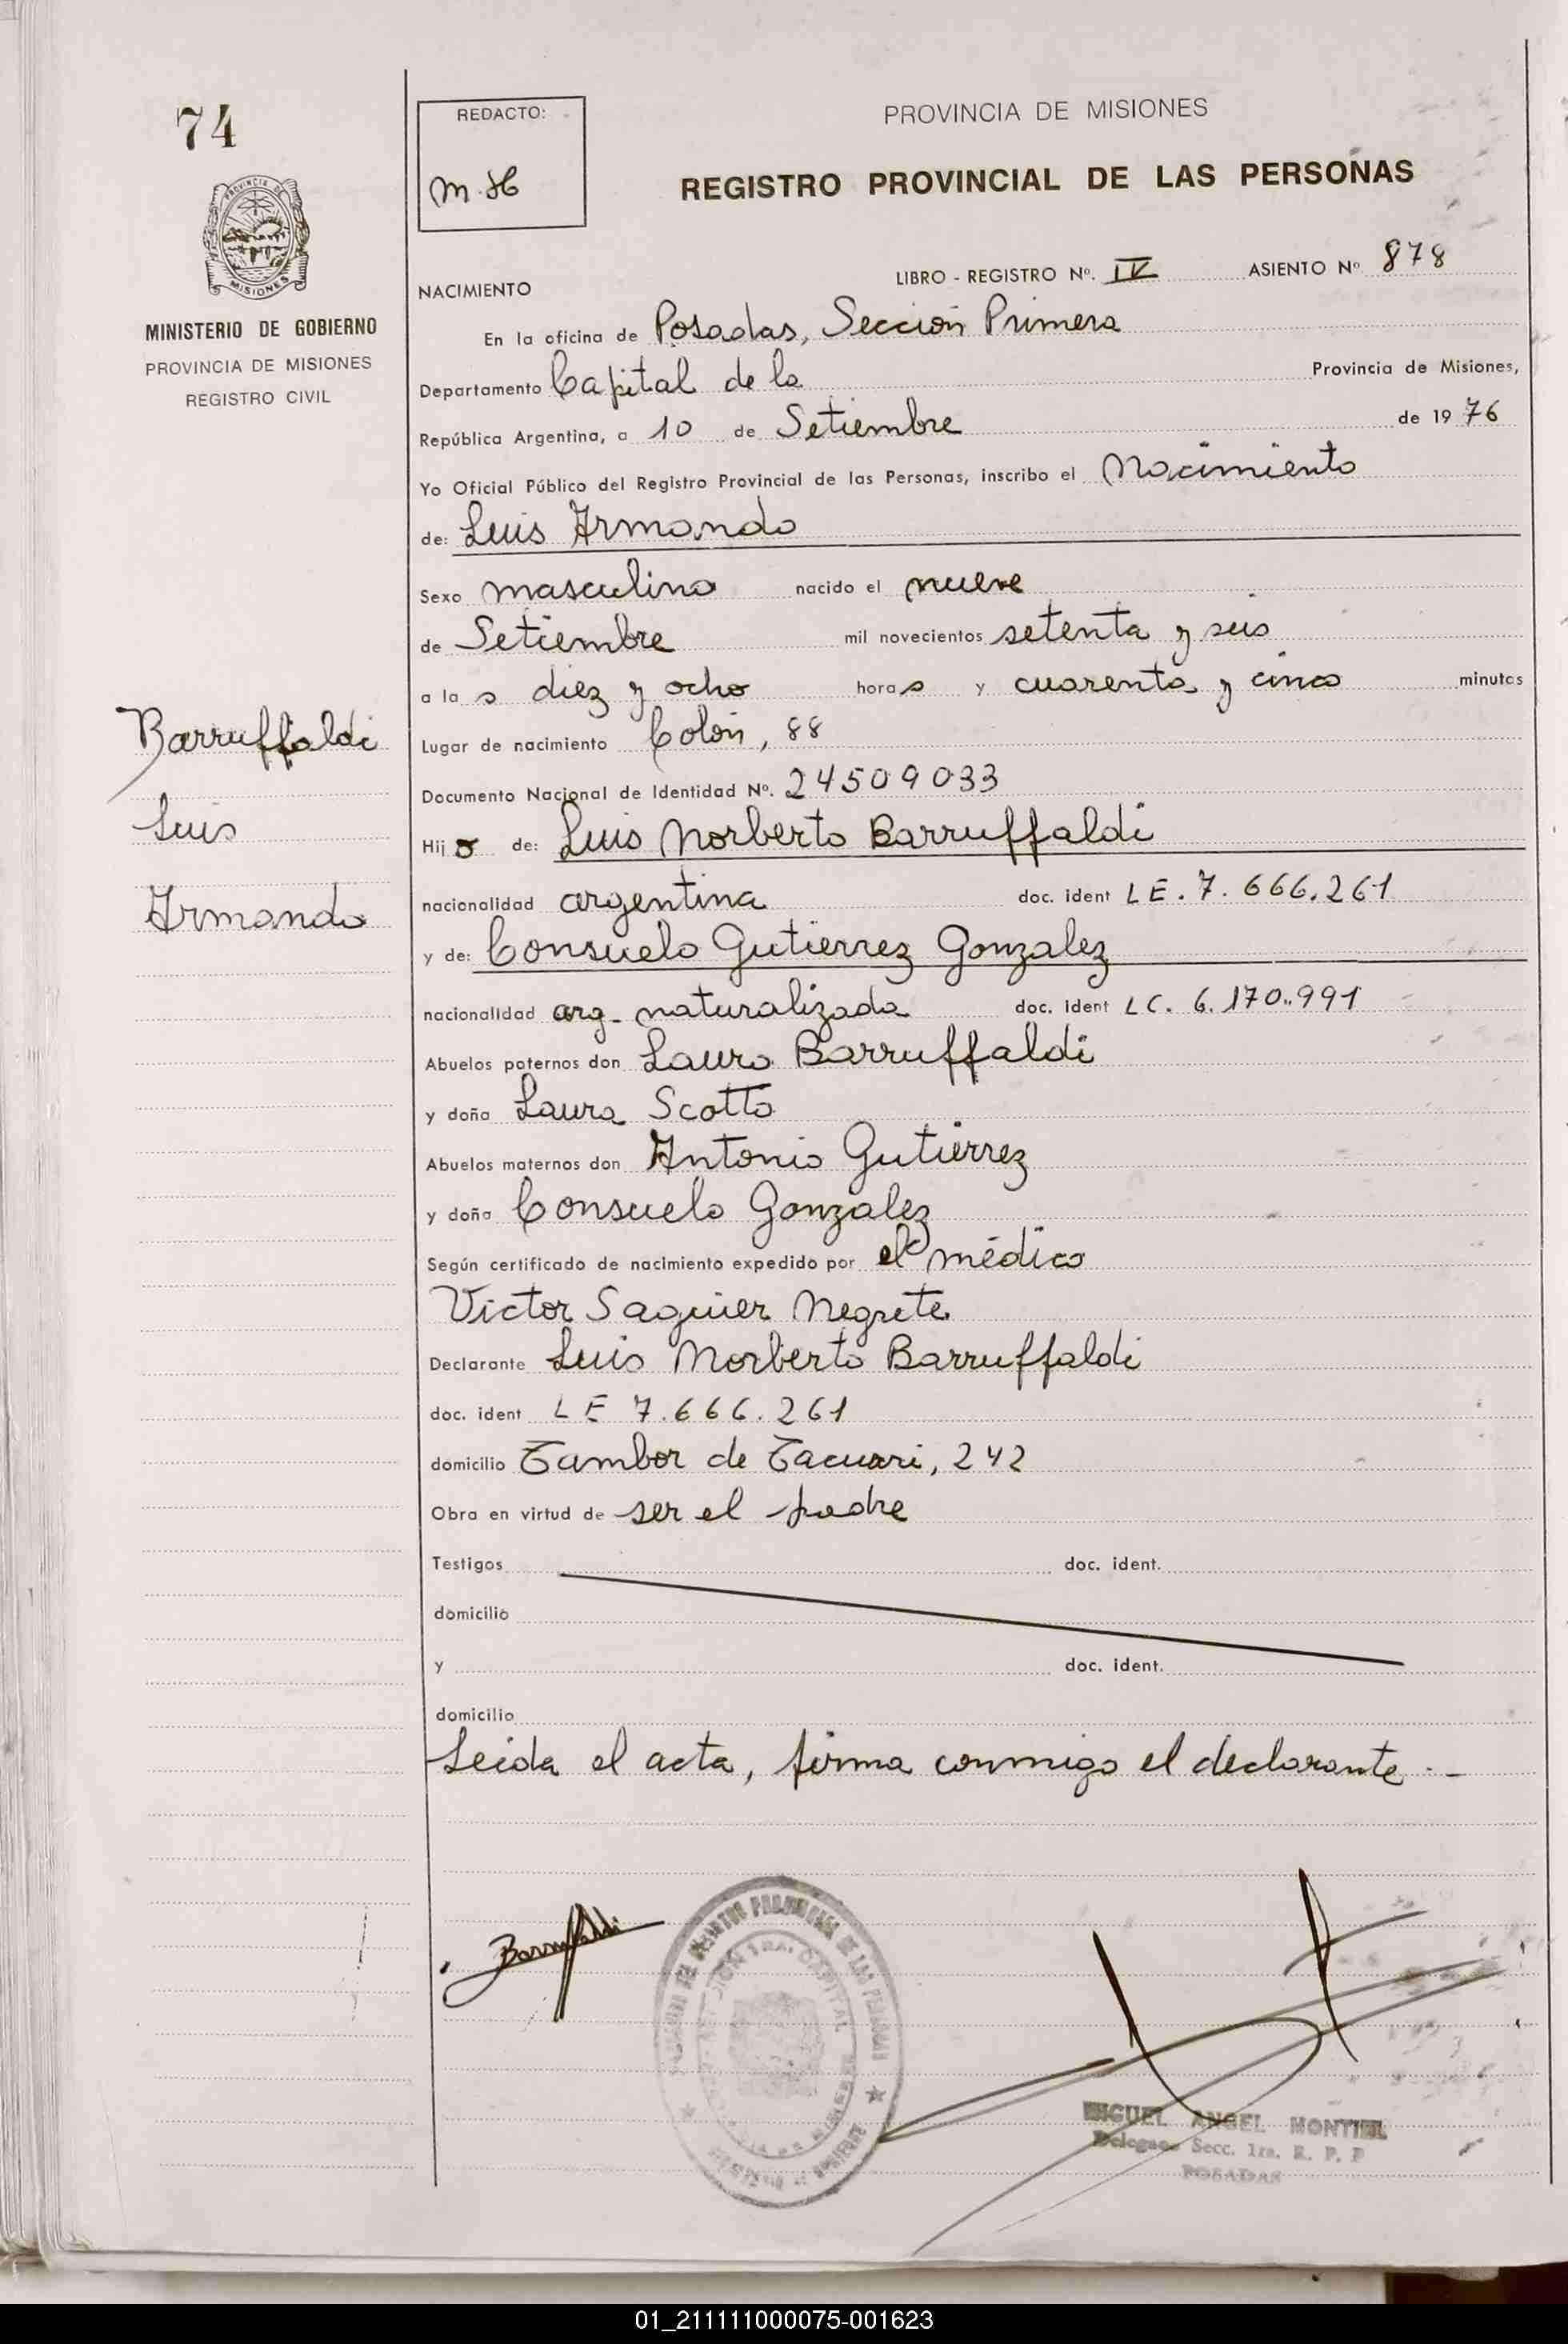 74
REDACTO:
M. H
PROVINCIA DE MISIONES
REGISTRO PROVINCIAL DE LAS PERSONAS
MISIONES
MINISTERIO DE GOBIERNO
PROVINCIA DE MISIONES
REGISTRO CIVIL
NACIMIENTO
LIBRO - REGISTRO Nº. IV ASIENTO Nº 878
En la oficina de Posadas, Sección Primera
Departamento Capital de la Provincia de Misiones,
República Argentina, a 10 de Setiembre de 1976
Yo Oficial Público del Registro Provincial de las Personas, inscribo el Nacimiento
de: Luis Armando
Sexo masculino nacido el nueve
de Setiembre mil novecientos setenta y seis
a la s diez y ocho hora s y cuarenta y cinco minutos
Barruffaldi
Luis
Armando
Lugar de nacimiento Colón, 88
Documento Nacional de Identidad Nº. 24509033
Hij o de: Luis Norberto Barruffaldi
nacionalidad argentina doc. ident LE. 7.666.261
y de: Consuelo Gutierrez Gonzalez
nacionalidad arg. naturalizada doc. ident LC. 6.170.991
Abuelos paternos don Lauro Barruffaldi
y doña Laura Scotto
Abuelos maternos don Antonio Gutiérrez
y doña Consuelo Gonzalez
Según certificado de nacimiento expedido por el médico
Victor Saguier Negrete
Declarante Luis Norberto Barruffaldi
doc. ident LE 7.666.261
domicilio Tambor de Tacuari, 242
Obra en virtud de ser el padre
Testigos doc. ident.
domicilio
y doc. ident.
domicilio
Leída el acta, firma conmigo el declarante.-
Barruffaldi
MIGUEL ANGEL MONTIEL
Delegado Secc. 1ra. R. P. P
POSADAS
01_211111000075-001623